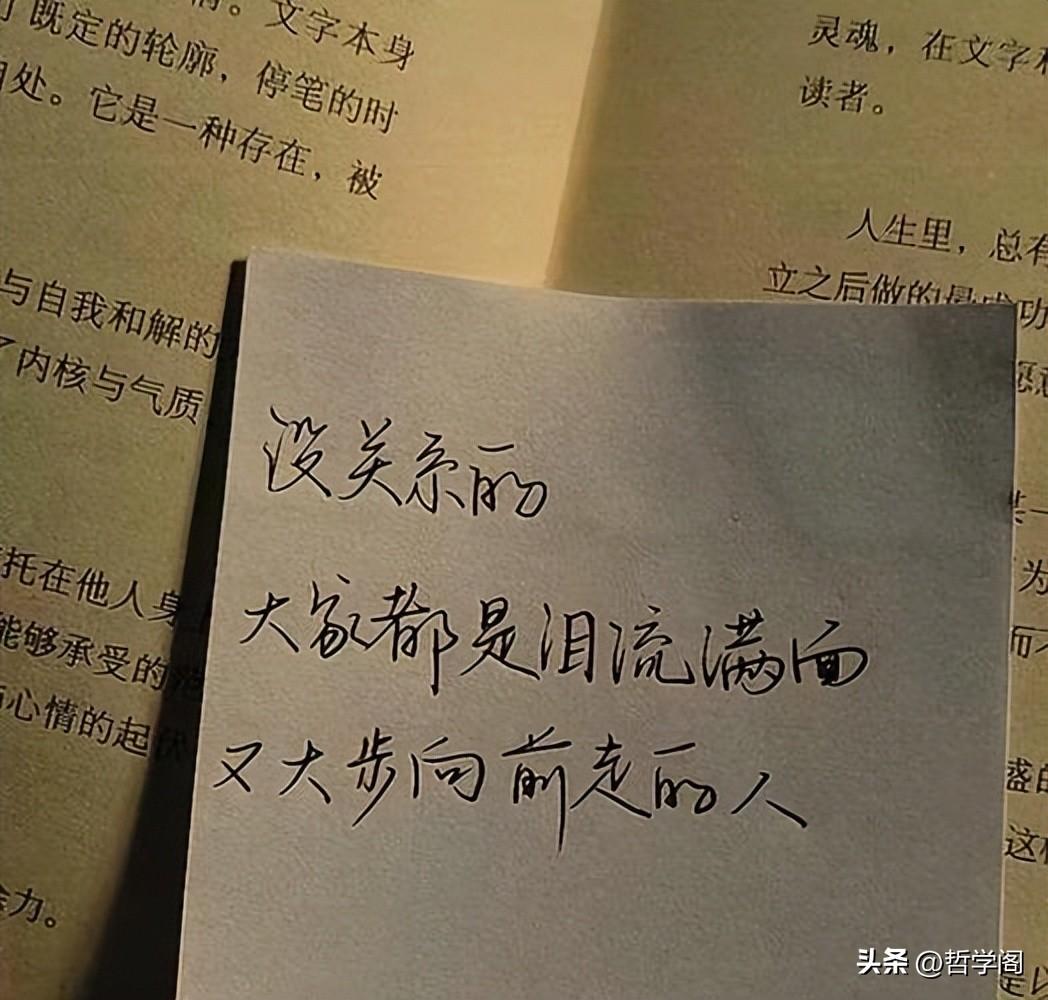 情。文字本身
既定的轮廓，停笔的时
相处。它是一种存在，被
与自我和解的
了内核与气质
托在他人身
能够承受的
心情的起伏
力。
灵魂，在文字
读者。
人生里，总有
立之后做的最成功
愿意
某一
为
而不
盛的
这样
是以
没关系的
大家都是泪流满面
又大步向前走的人
头条 @哲学阁